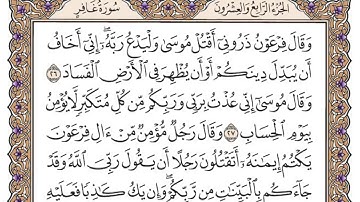 الجزء الرابع والعشرون
سورة غافر
وَقَالَ فِرْعَوْنُ ذَرُونِيٓ أَقْتُلْ مُوسَىٰ وَلْيَدْعُ رَبَّهُۥٓ ۖ إِنِّيٓ أَخَافُ
أَن يُبَدِّلَ دِينَكُمْ أَوْ أَن يُظْهِرَ فِي ٱلْأَرْضِ ٱلْفَسَادَ ٢٦
وَقَالَ مُوسَىٰٓ إِنِّي عُذْتُ بِرَبِّي وَرَبِّكُم مِّن كُلِّ مُتَكَبِّرٍ لَّا يُؤْمِنُ
بِيَوْمِ ٱلْحِسَابِ ٢٧ وَقَالَ رَجُلٌ مُّؤْمِنٌ مِّنْ ءَالِ فِرْعَوْنَ
يَكْتُمُ إِيمَٰنَهُۥٓ أَتَقْتُلُونَ رَجُلًا أَن يَقُولَ رَبِّيَ ٱللَّهُ وَقَدْ
جَآءَكُم بِٱلْبَيِّنَٰتِ مِن رَّبِّكُمْ ۖ وَإِن يَكُ كَٰذِبًا فَعَلَيْهِ